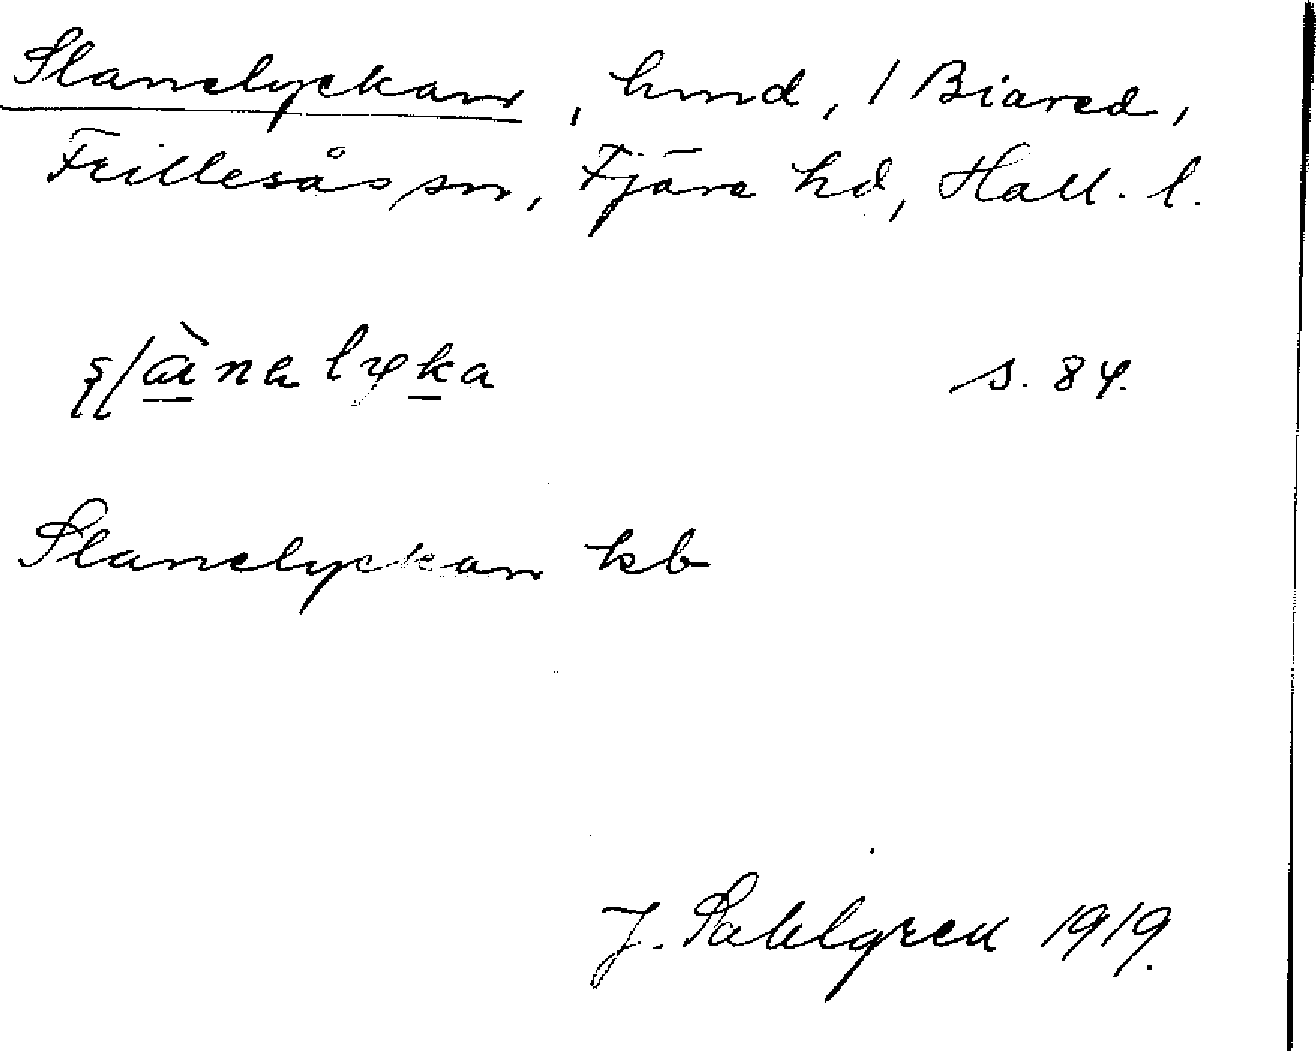 Slanelyckan, hmd, / Biared,
Frillesås sn, Fjäre hd, Hall. l.
s. 84.
Slanelyckan kb
J. Sahlgren 1919.